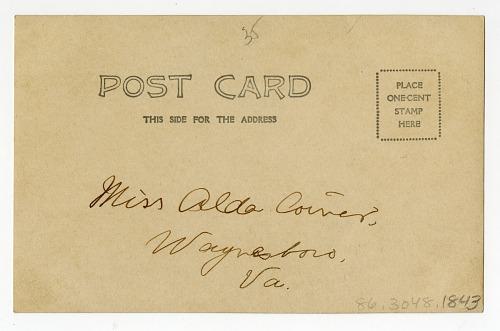 35
POST CARD
THIS SIDE FOR THE ADDRESS
PLACE
ONE-CENT
STAMP
HERE
Miss Alda Coiner,
Waynesboro,
Va.
86.3048.1843